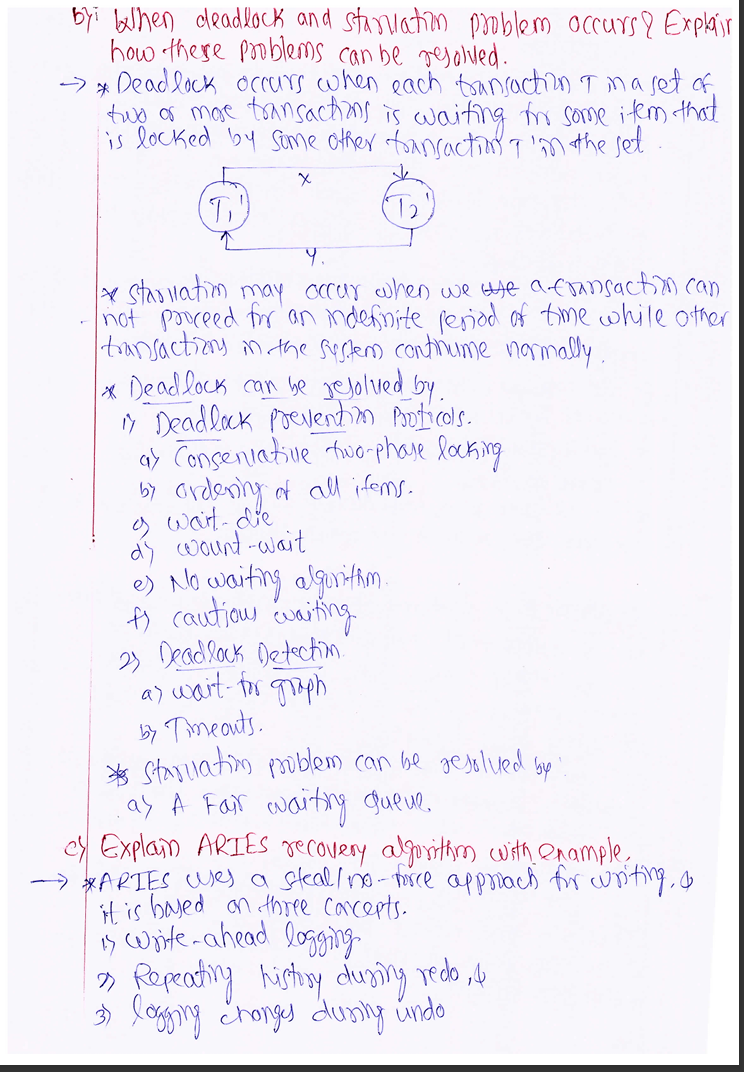 b) When deadlock and starvation problem occurs? Explain
how these problems can be resolved.
→ * Deadlock occurs when each transaction T in a set of
two or more transactions is waiting for some item that
is locked by some other transaction T' in the set.
X
T1' T2'
Y.
* starvation may occur when we use a transaction can
not proceed for an indefinite period of time while other
transactions in the system continume normally.
* Deadlock can be resolved by.
1) Deadlock prevention Proticols.
a) Conservative two-phase locking
b) ordering of all items.
c) wait-die
d) wount-wait
e) No waiting algorithm.
f) cautious waiting
2) Deadlock Detection.
a) wait-for graph
b) Timeouts.
* Starvation problem can be resolved by:
a) A Fair waiting Queue.
c) Explain ARIES recovery algorithm with example.
→ * ARIES uses a steal/no-force approach for writing, &
it is based on three concepts.
1) Write-ahead logging
2) Repeating history during redo, &
3) logging changes during undo